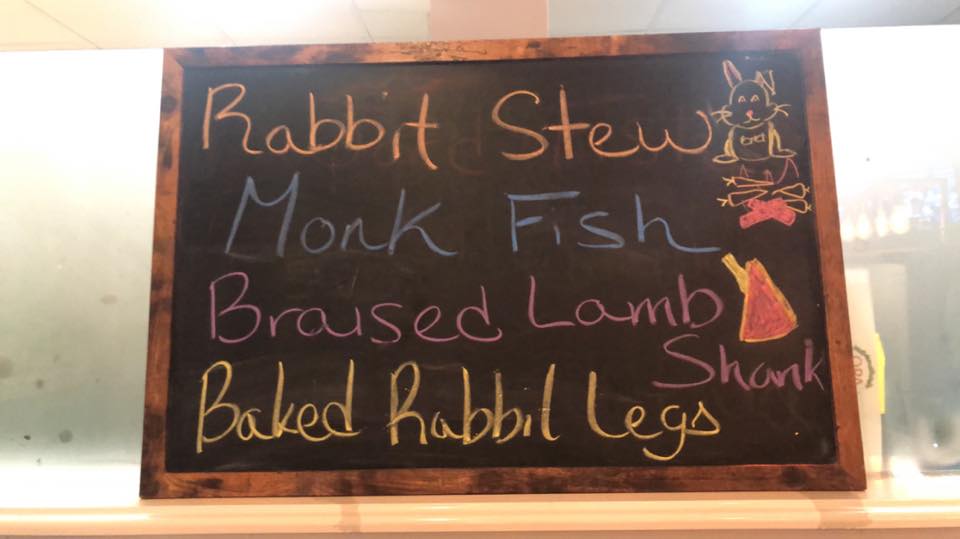 Rabbit Stew
Monk Fish
Braised Lamb
Shank
Baked Rabbit Legs